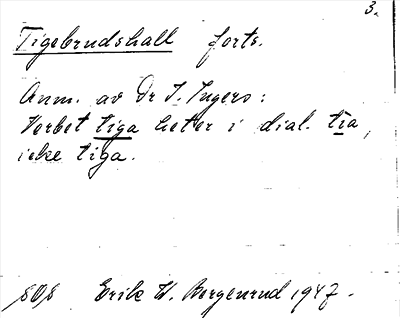 3.
Tigebrudshall forts.
Anm. av Dr I. Ingers:
Verbet tiga heter i dial. tia,
icke tiga.
Erik W. Borgenrud 1947.